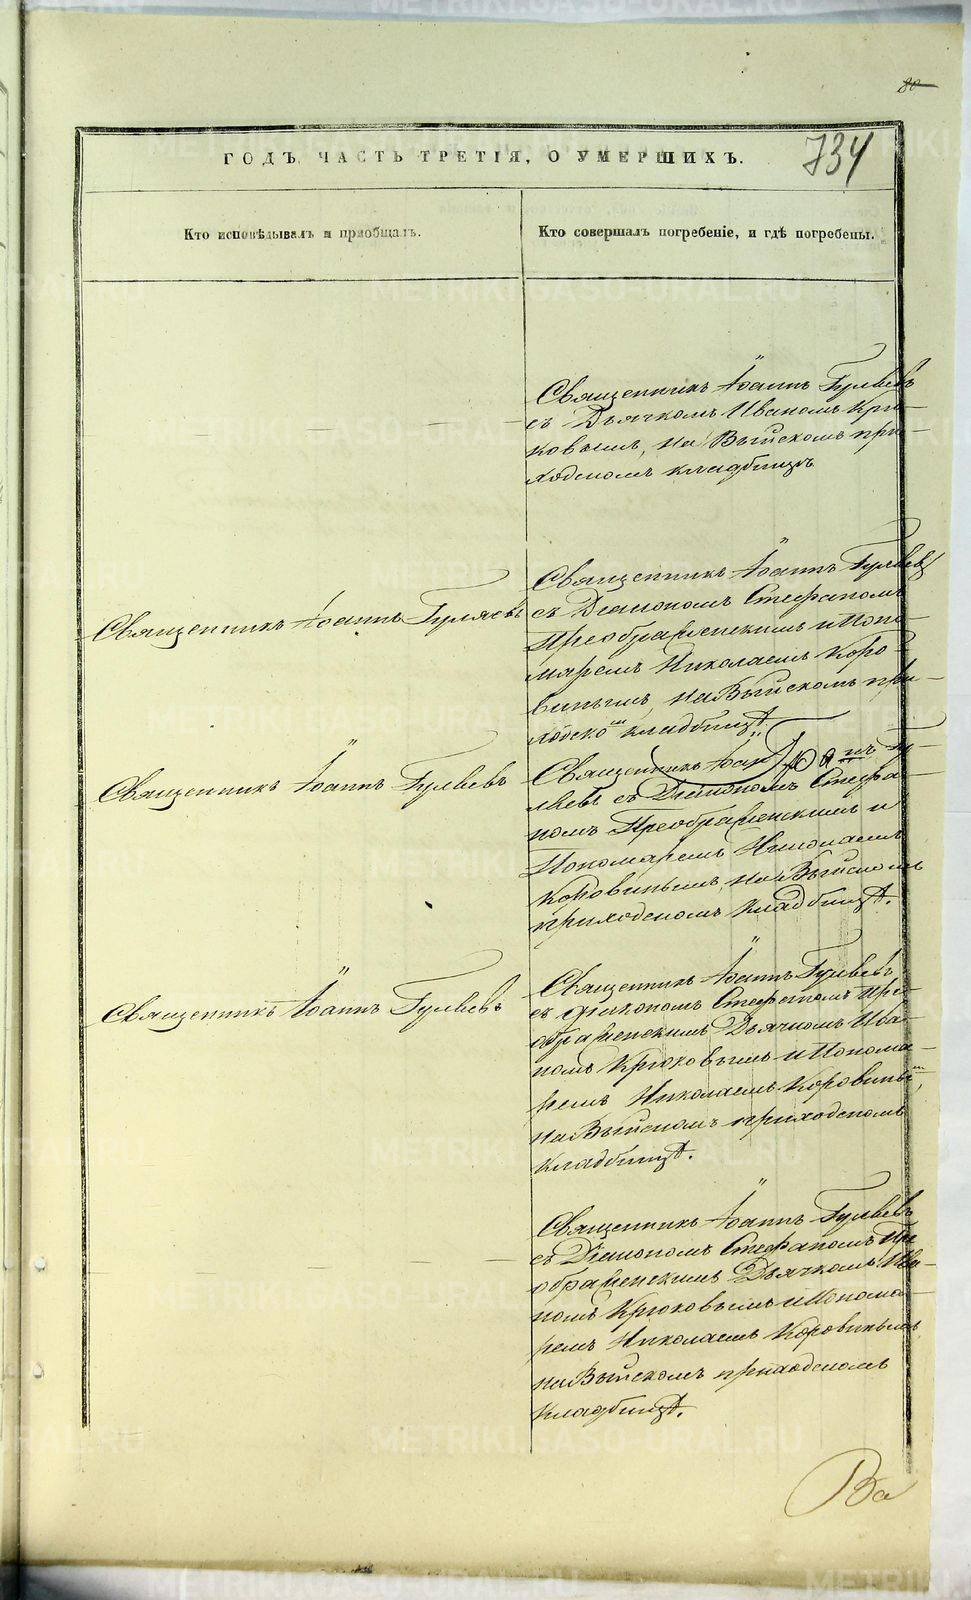 80
734
ГОДЪ ЧАСТЬ ТРЕТІЯ, О УМЕРШИХЪ.
Кто исповѣдывалъ и пріобщалъ.
Кто совершалъ погребеніе, и гдѣ погребены.
Священникъ Іоаннъ Гуляевъ
съ Дьячкомъ Иваномъ Крю-
ковымъ, на Выйскомъ при-
ходскомъ кладбищѣ
Священникъ Іоаннъ Гуляевъ
Священникъ Іоаннъ Гуляевъ
съ Діакономъ Стефаномъ
Преображенскимъ и Поно-
маремъ Николаемъ Коро-
винымъ, на Выйскомъ при-
ходском кладбищѣ.
Священникъ Іоаннъ Гуляевъ
Священникъ Іоаннъ Гу-
ляевъ съ Діакономъ Стефа-
номъ Преображенскимъ и
Пономаремъ Николаемъ
Коровинымъ, на Выйскомъ
приходскомъ Кладбищѣ.
Священникъ Іоаннъ Гуляевъ
Священникъ Іоаннъ Гуляевъ
съ Діакономъ Стефаномъ Пре-
ображенскимъ Дьячкомъ Ива-
номъ Крюковымъ и Понома-
ремъ Николаемъ Коровиным,
на Выйскомъ приходскомъ
Кладбищѣ.
Священникъ Іоаннъ Гуляевъ
съ Діакономъ Стефаномъ Пре
ображенскимъ Дьячкомъ Ива-
номъ Крюковымъ и Понома-
ремъ Николаемъ Коровинымъ
на Выйскомъ приходскомъ
Кладбищѣ.
Ва
METRIKI.GASO-URAL.RU